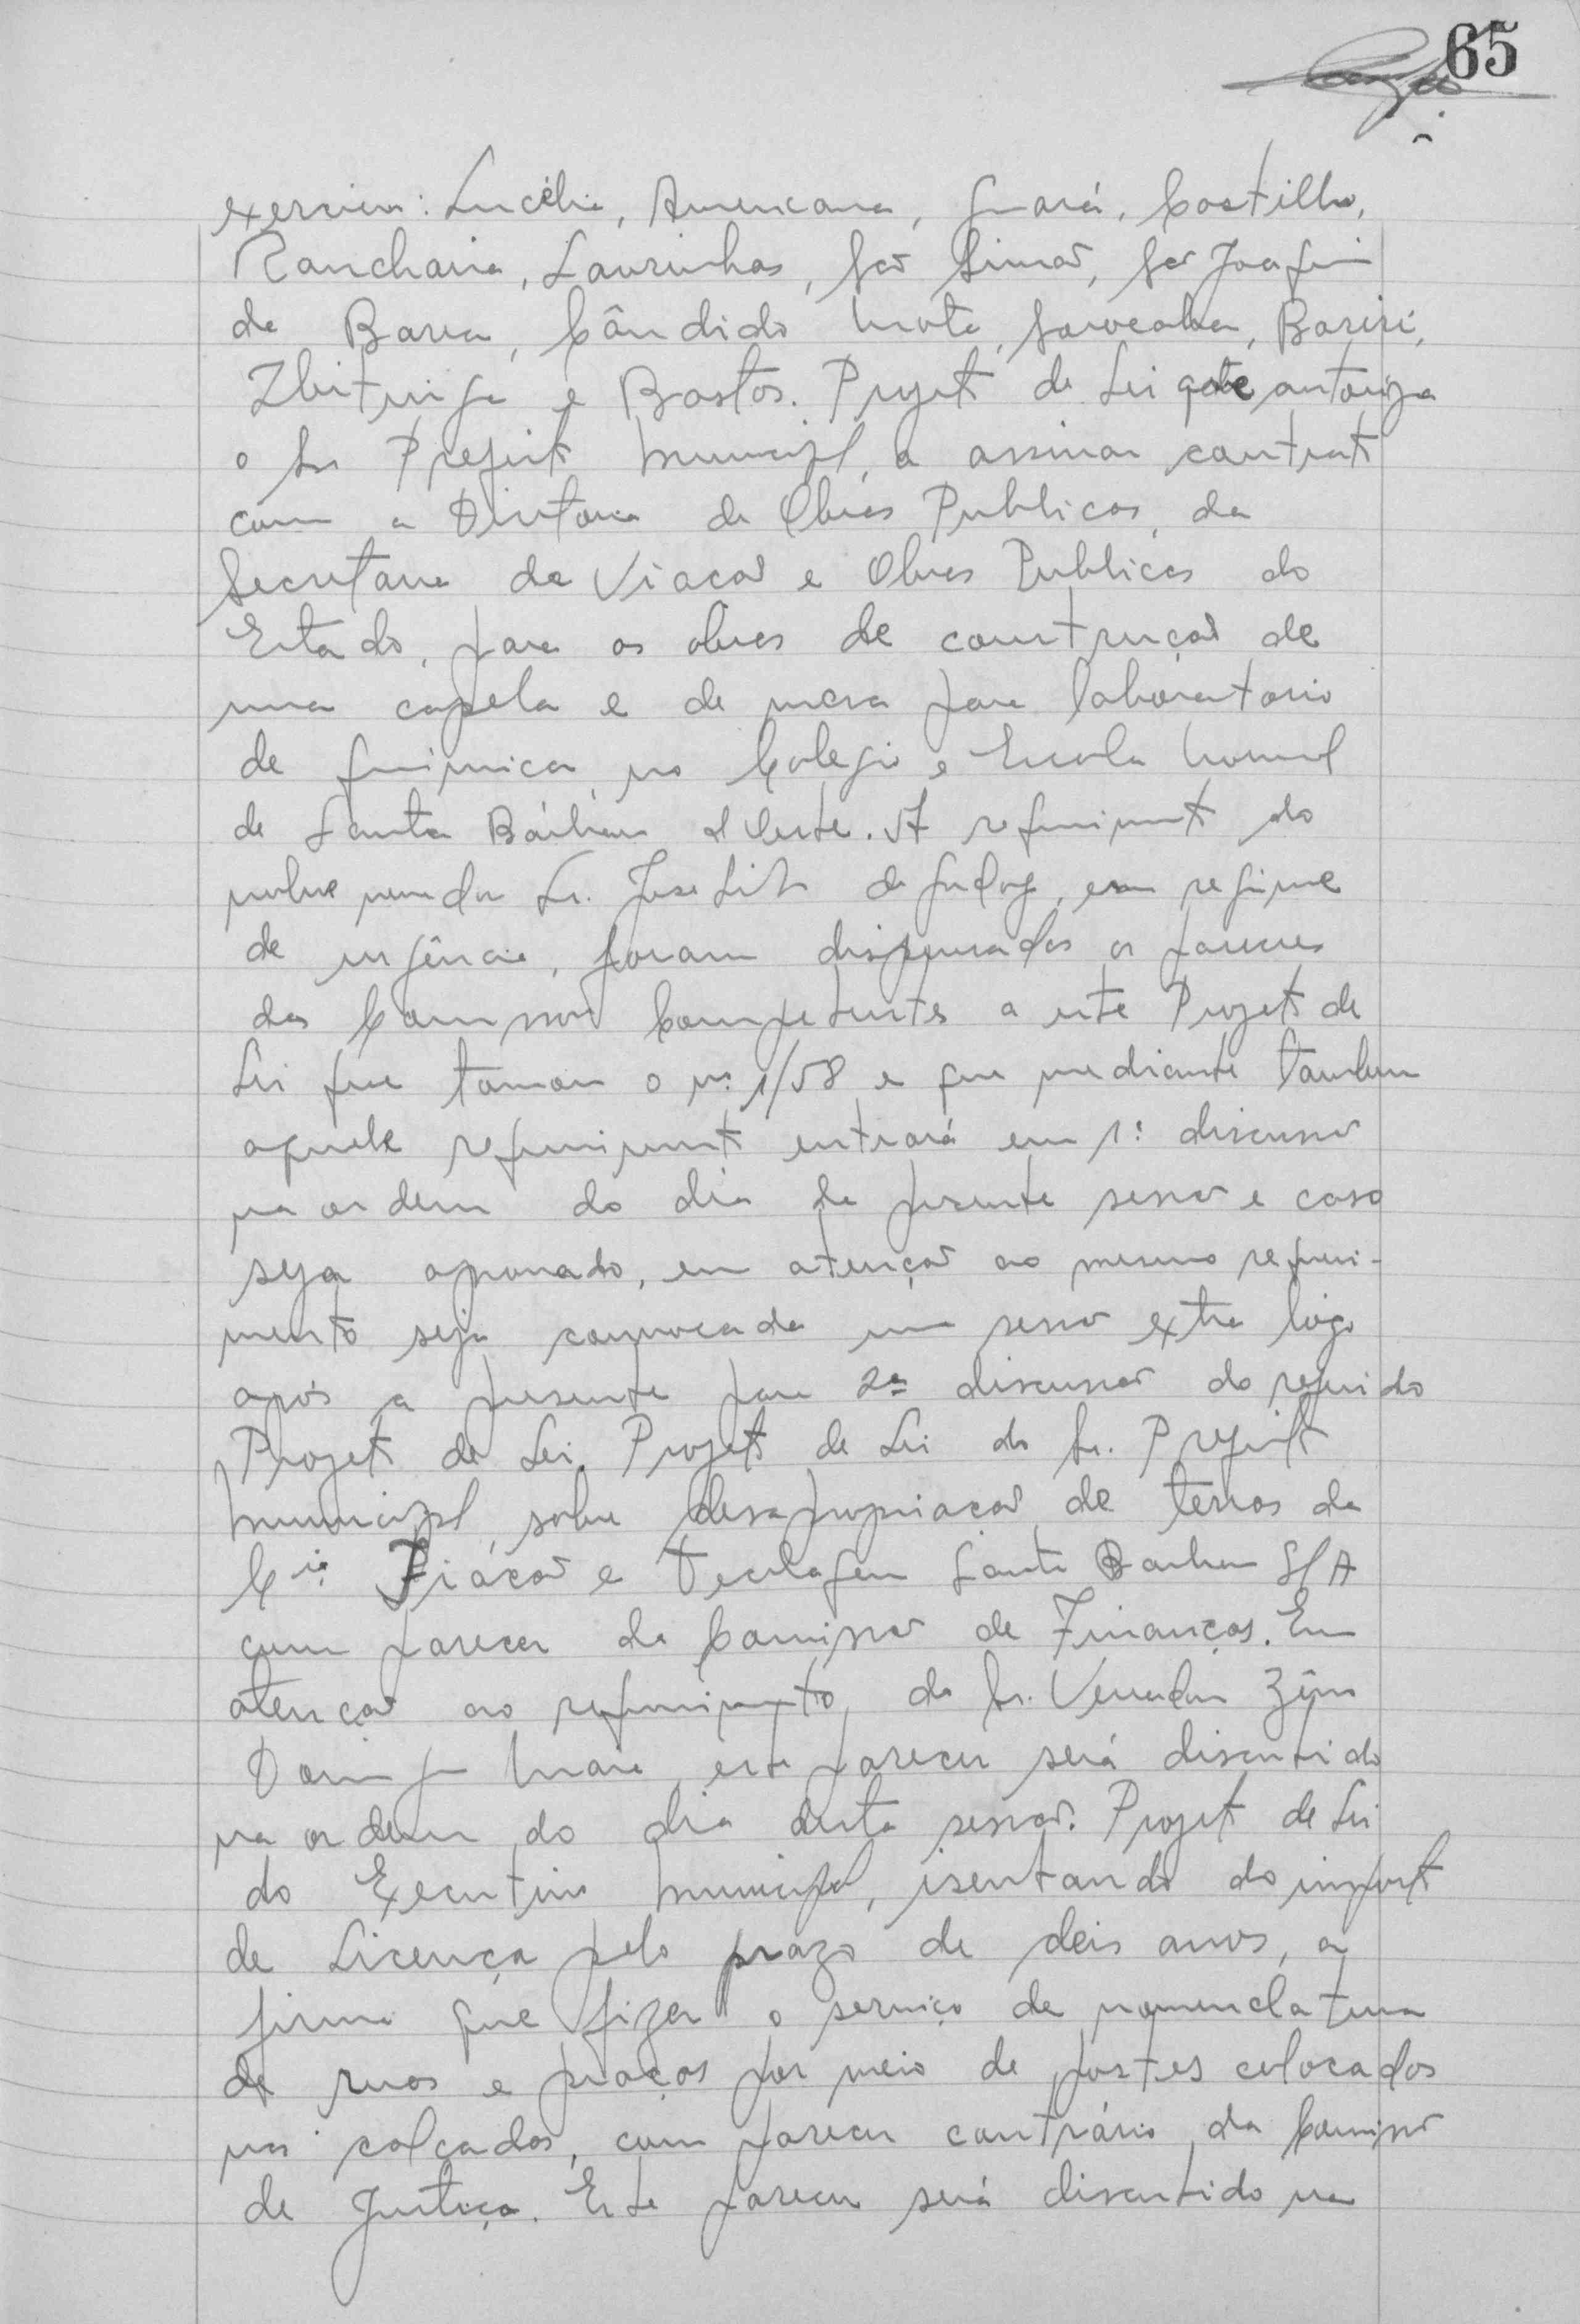 65
exercicio: Lucélia, Americana, Guará, Castilho,
Rancharia, Lavrinhas, São Simão, São Joaquim
da Barra, Cândido Mota, Sorocaba, Bariri,
Ibitinga e Bastos. Projeto de Lei que autoriza
o Sr Prefeito Municipal, a assinar contrato
com a Diretoria de Obras Publicas, da
Secretaria da Viação e Obras Publicas do
Estado, para as obras de construção de
uma capela e de mesa para laboratorio
de quimica, no Colegio e Escola Normal
de Santa Bárbara d'Oeste. A requerimento do
nobre vereador Sr. José Lito de Godoy, em regime
de urgência, foram dispensados os pareceres
das Comissões Competentes a este Projeto de
Lei que tomou o nº 1/58 e que mediante tambem
aquele requerimento entrará em 1ª discussão
na ordem do dia da presente sessão e caso
seja aprovado, em atenção ao mesmo requeri-
mento seja convocada uma sessão extra logo
após a presente para 2ª discussão do referido
Projeto de Lei. Projeto de Lei do Sr. Prefeito
Municipal, sobre desapropriação de terras da
Cia. Fiação e Tecelagem Santa Barbara S/A
com parecer da Comissão de Finanças. Em
atenção ao requerimento, do Sr. Vereador
Maia, este parecer será discutido
na ordem do dia desta sessão. Projeto de Lei
do Executivo Municipal, isentando do imposto
de Licença pelo prazo de dois anos, a
firma que fizer o serviço de nomenclatura
de ruas e praças por meio de postes colocados
nas calçadas, com parecer contrário, da Comissão
de Justiça. Este parecer será discutido na